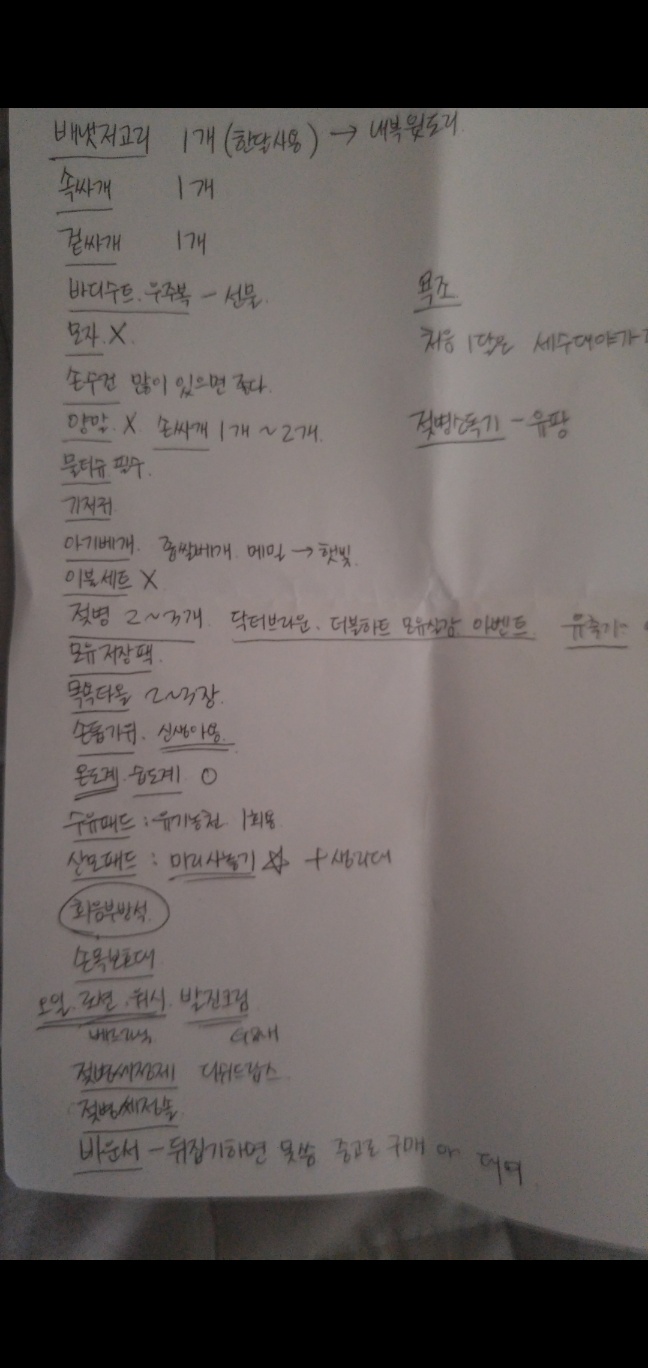 배냇저고리 1개 (한달사용) → 내복윗도리
속싸개 1개
겉싸개 1개
바디수트. 우주복 - 선물.
욕조
모자. X.
처음 1달은 세수대야가
손수건 많이 있으면 좋다.
양말. X 손싸개 1개 ~ 2개.
젖병소독기 - 유팡
물티슈 필수.
기저귀
아기베개. 좁쌀베개. 메밀 → 햇빛.
이불세트 X
젖병 2~3개. 닥터브라운. 더블하트 모유실감 이벤트. 유축기
모유저장팩.
목욕타올 2~3장.
손톱가위. 신생아용.
온도계. 습도계 O
수유패드 : 유기농천 1회용
산모패드 : 미리사놓기 ☆ + 생리대
회음부방석.
손목보호대
오일. 로션. 워시. 발진크림
젖병세정제
젖병세정솔
바운서 - 뒤집기하면 못씀 중고로 구매